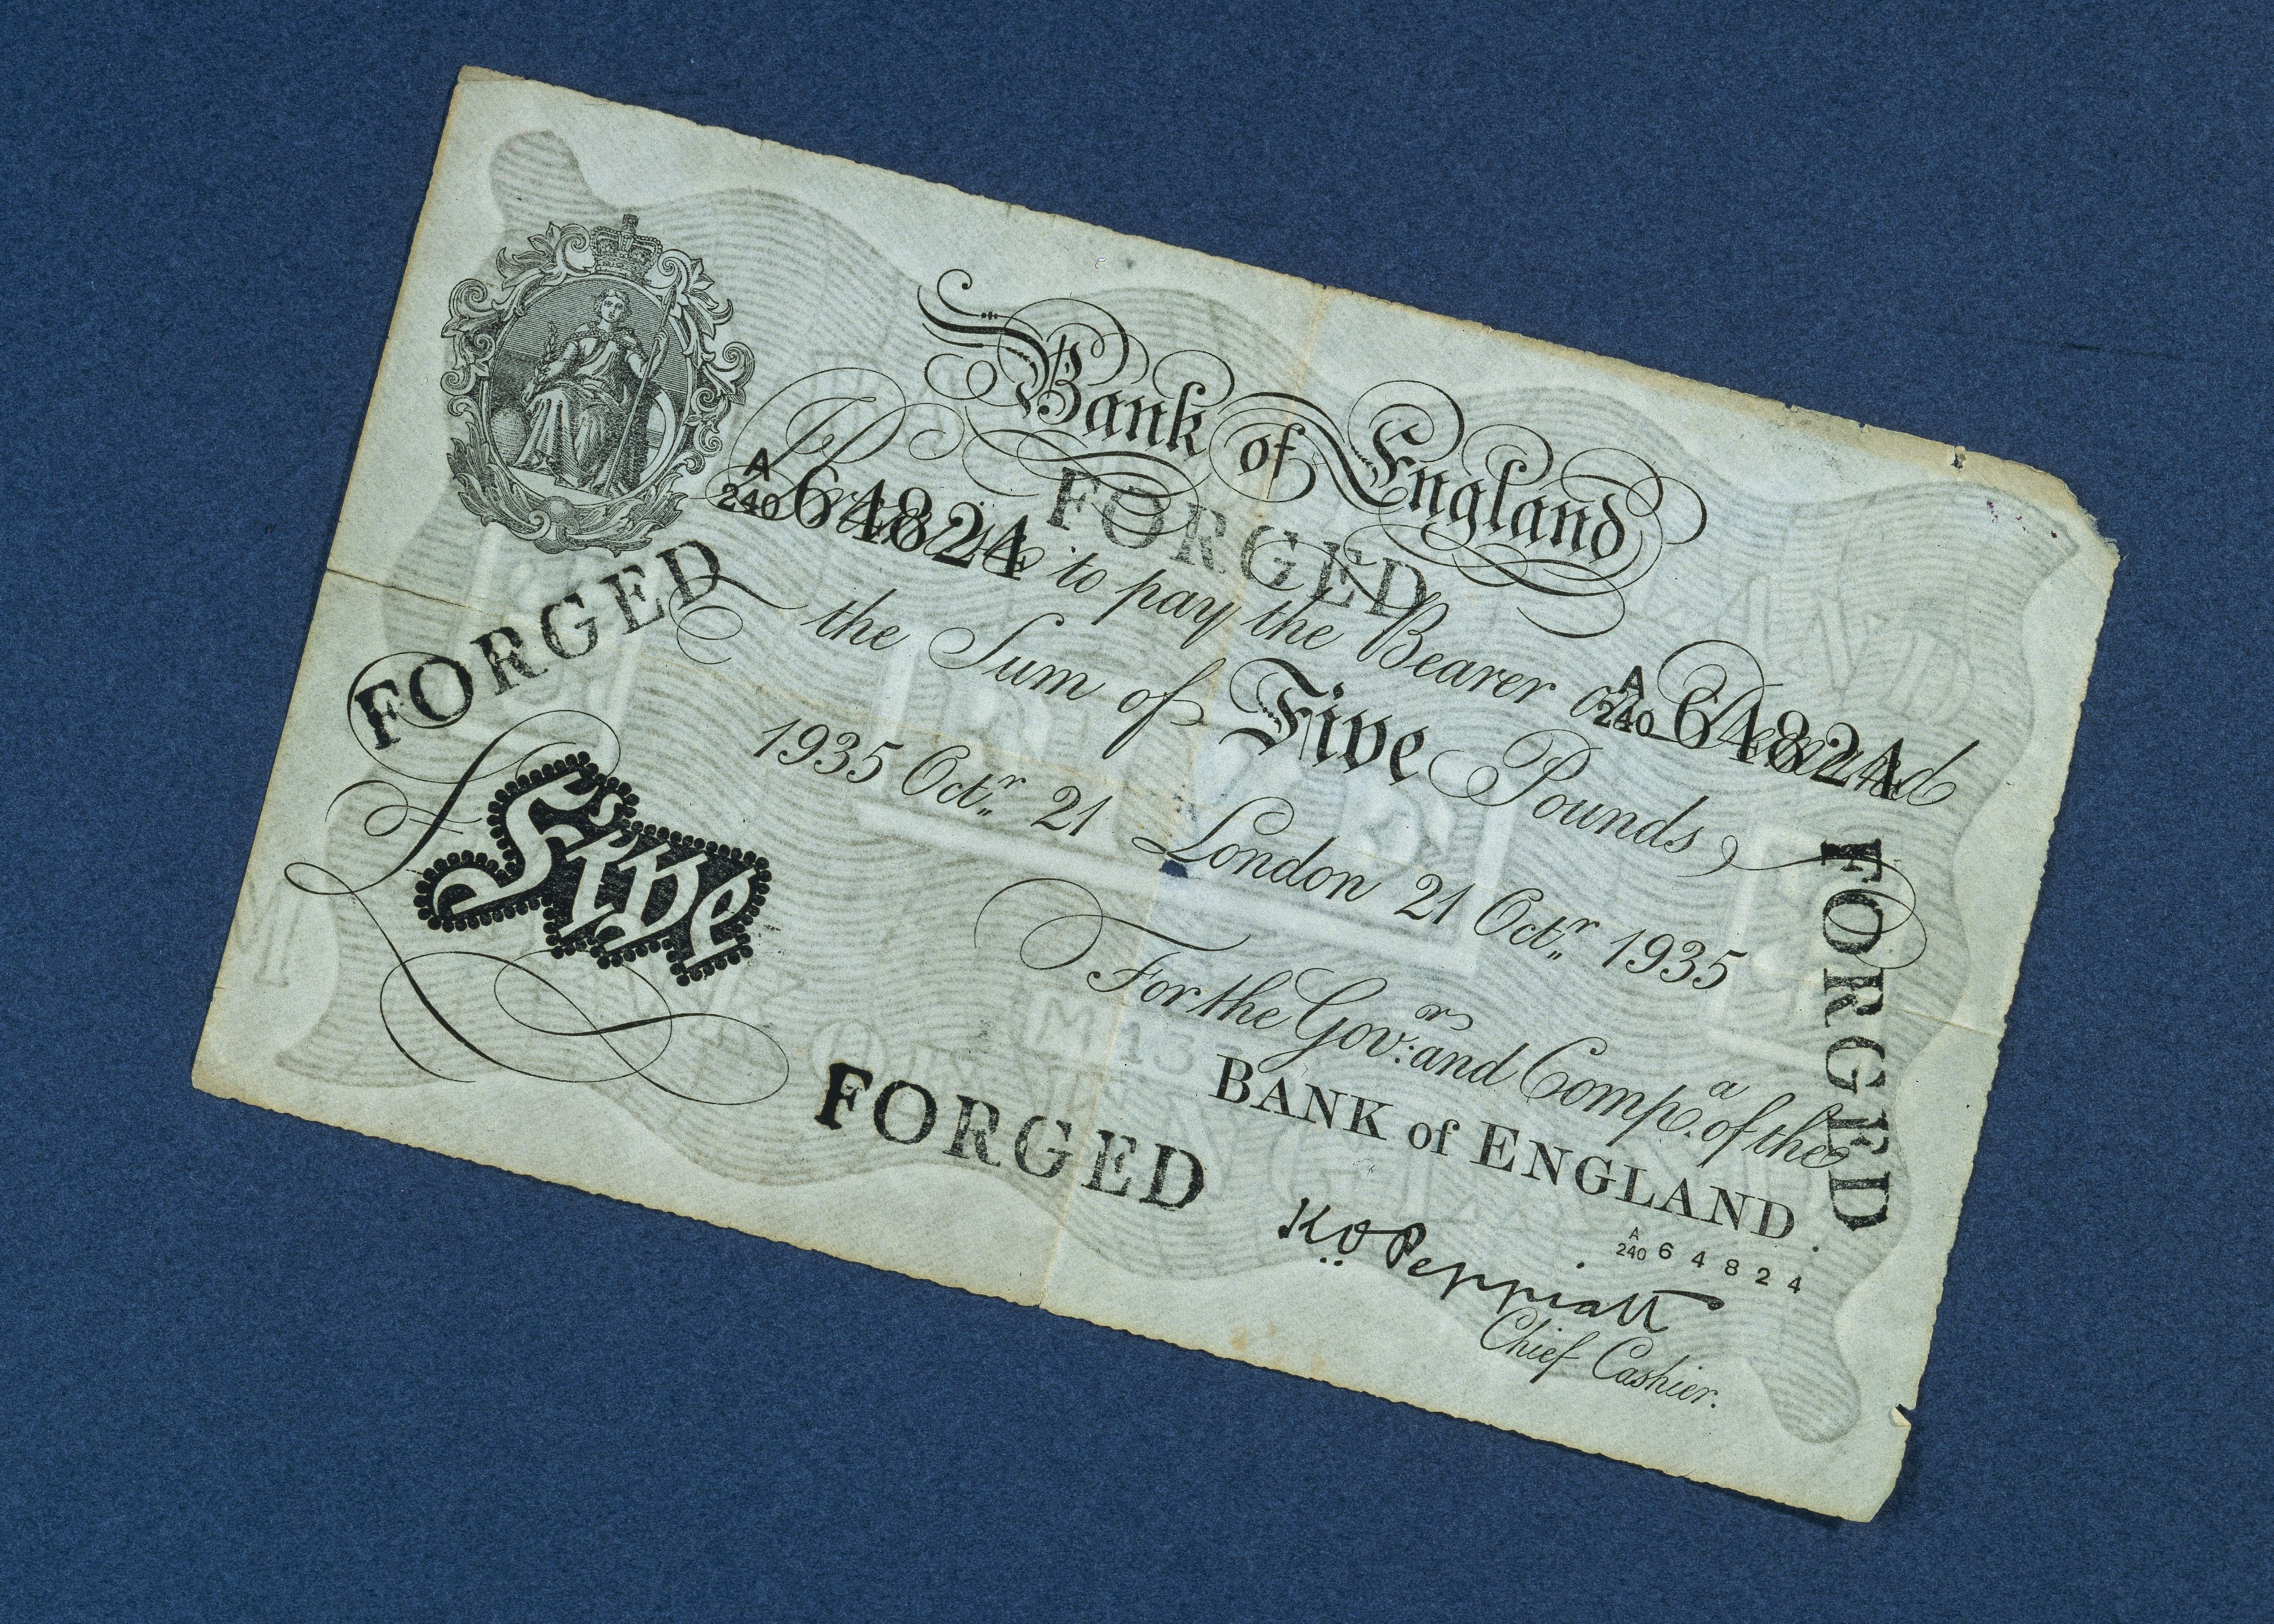 Bank of England
FORGED
A
240 64824 Promise to pay the Bearer on Demand A
240 64824
the Sum of Five Pounds
FORGED
1935 Octr. 21 London 21 Octr. 1935
FORGED
Five
For the Govr: and Compa. of the
BANK of ENGLAND.
FORGED
A
240 64824
K.O. Peppiatt
Chief Cashier.